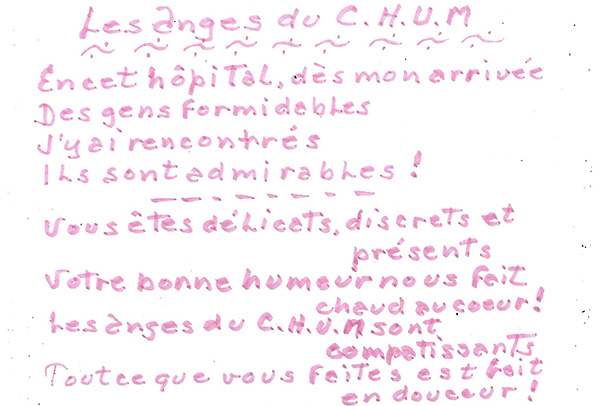 Les anges du C.H.U.M
En cet hôpital, dès mon arrivée
Des gens formidables
J'y ai rencontrés
Ils sont admirables !
Vous êtes délicats, discrets et
présents
Votre bonne humeur nous fait
chaud au coeur !
Les anges du C.H.U.M sont
compatissants
Tout ce que vous faites est fait
en douceur !